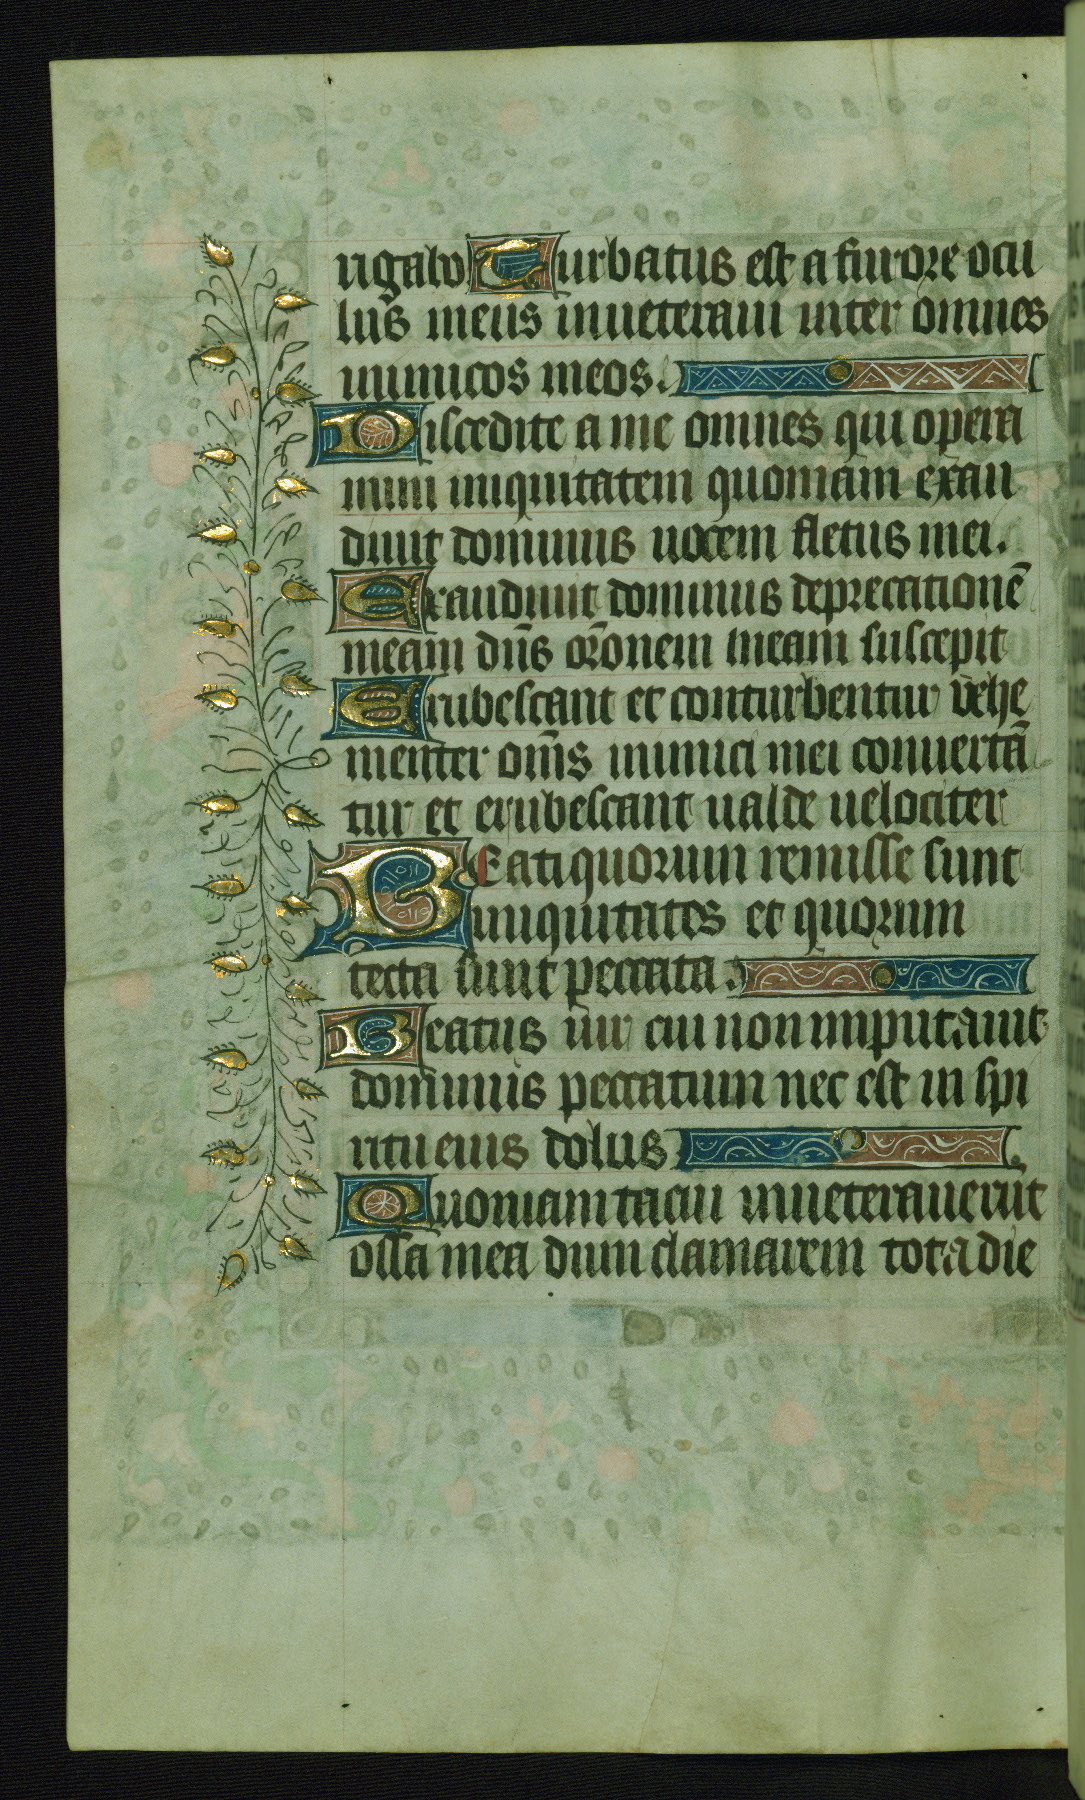 rigabo Turbatus est a furore ocu
lus meus inueteraui inter omnes
inimicos meos.
Discedite a me omnes qui opera
mini iniquitatem quoniam exau
diuit dominus uocem fletus mei.
Exaudiuit dominus deprecationē
meam dn̄s orōnem meam suscepit
Erubescant et conturbentur uehe
menter om̄s inimici mei conuertā
tur et erubescant ualde uelociter
BEati quorum remisse sunt
iniquitates et quorum
tecta sunt peccata.
Beatus uir cui non imputauit
dominus peccatum nec est in spi
ritu eius dolus
Quoniam tacui inueterauerūt
ossa mea dum clamarem tota die